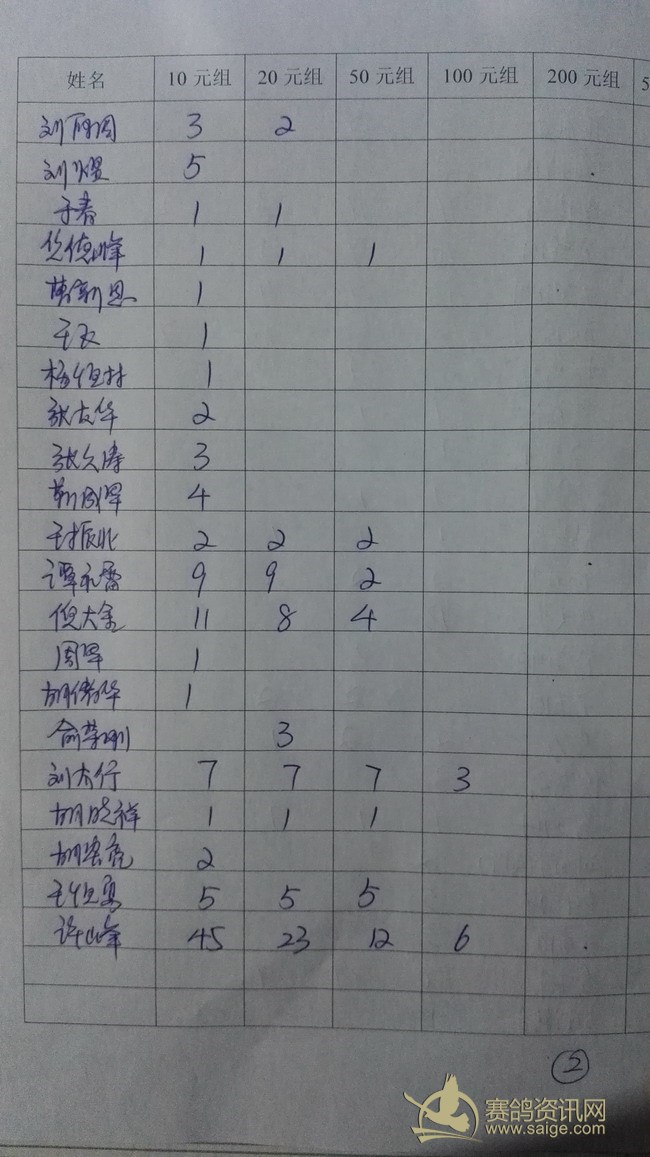 姓名 10元组 20元组 50元组 100元组 200元组 5
刘 3 2
刘煜 5
于春 1 1
德峰 1 1 1
新恩 1
王 1
杨恒林 1
张友华 2
张久涛 3
靳国军 4
王振北 2 2 2
谭永雷 9 9 2
倪大金 11 8 4
周军 1
胡华 1
俞荣刚 3
刘大行 7 7 7 3
胡晓祥 1 1 1
胡宏亮 2
王恒高 5 5 5
许山峰 45 23 12 6
2
赛鸽资讯网
www.saige.com